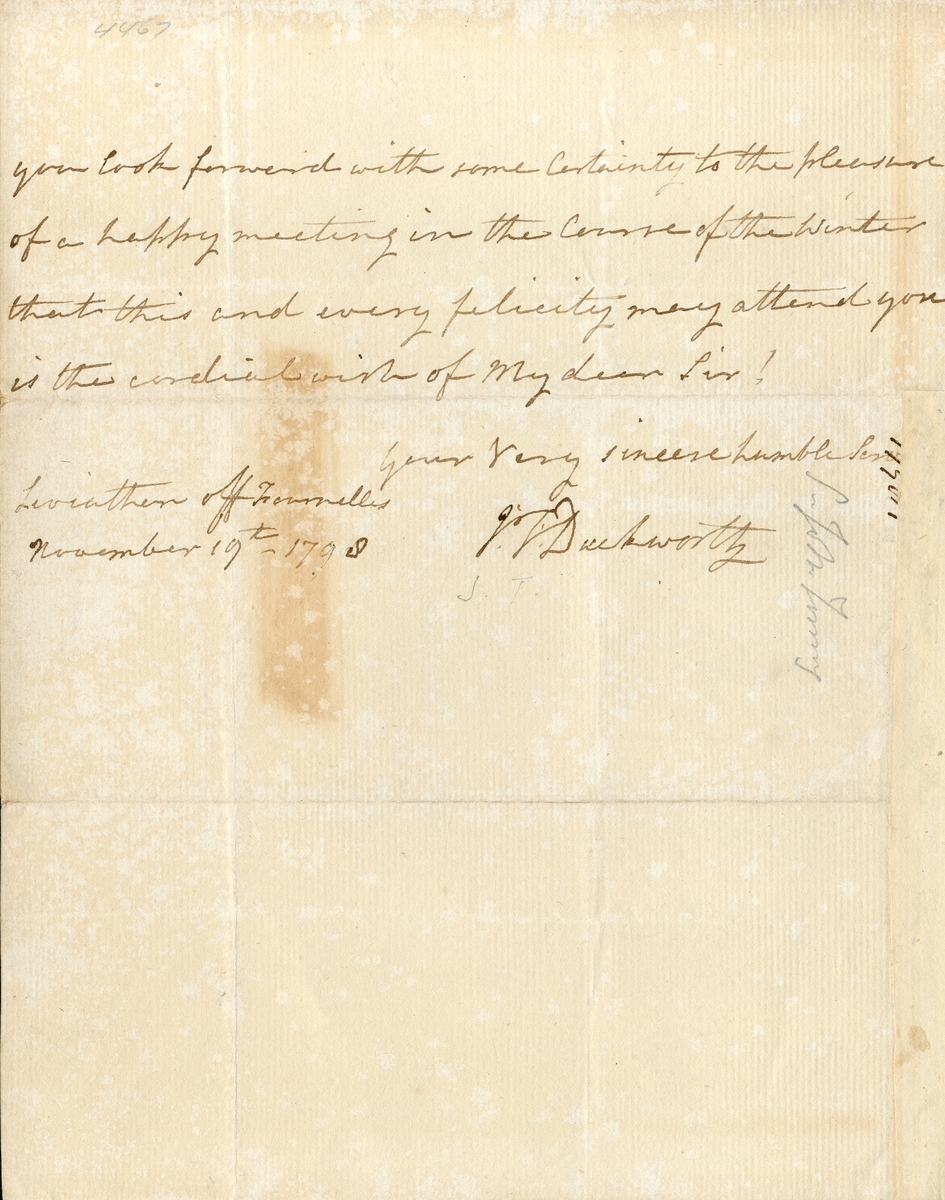 4467
you look forward with some Certainty to the pleasure
of a happy meeting in the Course of the Winter
that this and every felicity may attend you
is the cordial wish of My dear Sir!
Your Very sincere humble Sert
Leviathan off Fournelles
November 19th - 1798
J. T. Duckworth
J. T.